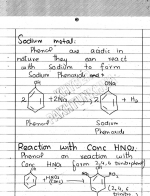 Sodium metal:
Phenol are acidic in
nature they can react
with sodium to form
Sodium Phenoxide and
OH
ONa
2 + 2Na → 2 + H2
Phenol Sodium
Phenoxide
Reaction with Conc HNO3:
Phenol on reaction with
Conc HNO3 form 2,4,6 trinitrophenol
OH
+ HNO3
(Conc)
OH
NO2
(2,4,6